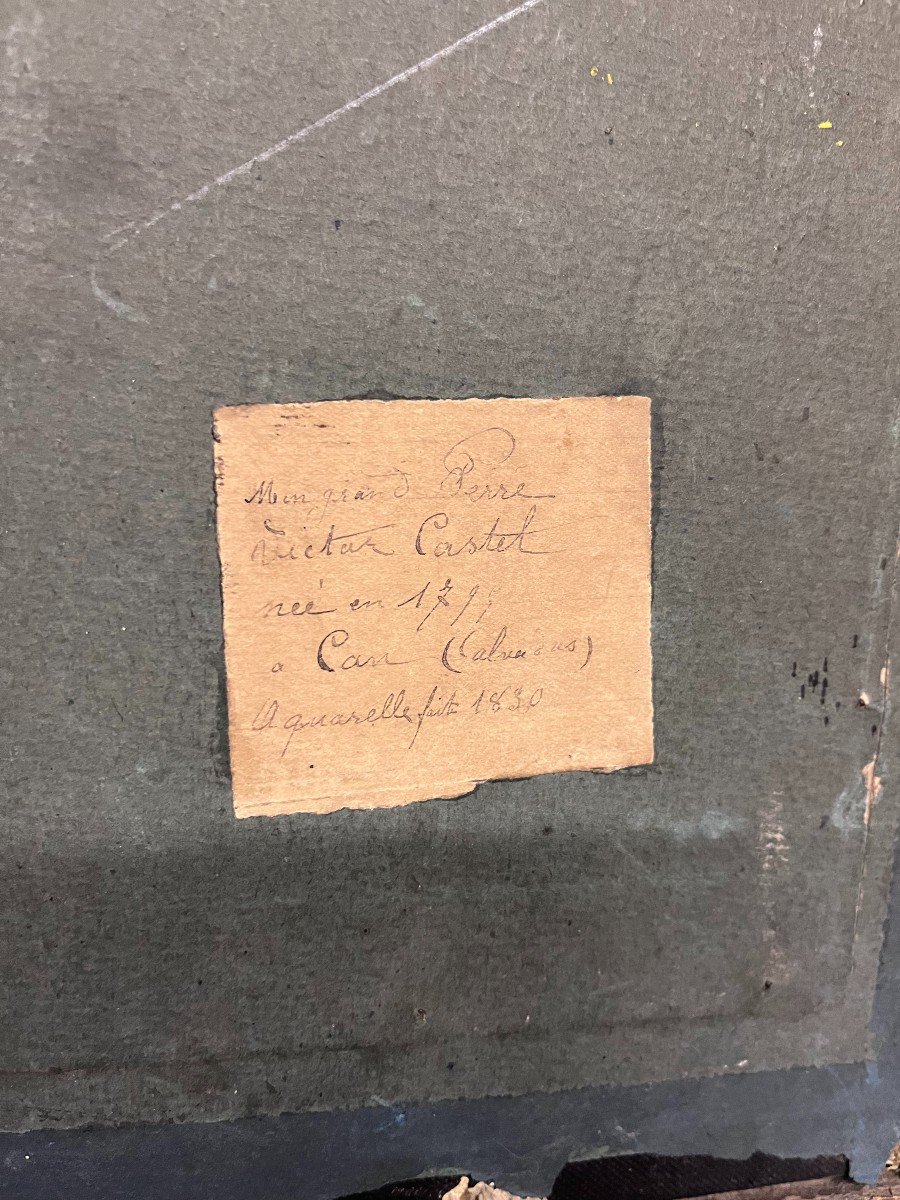 Mon grand Perre
Victor Castel
neé en 179
a Can (Calvados)
Aquarelle faite 1830